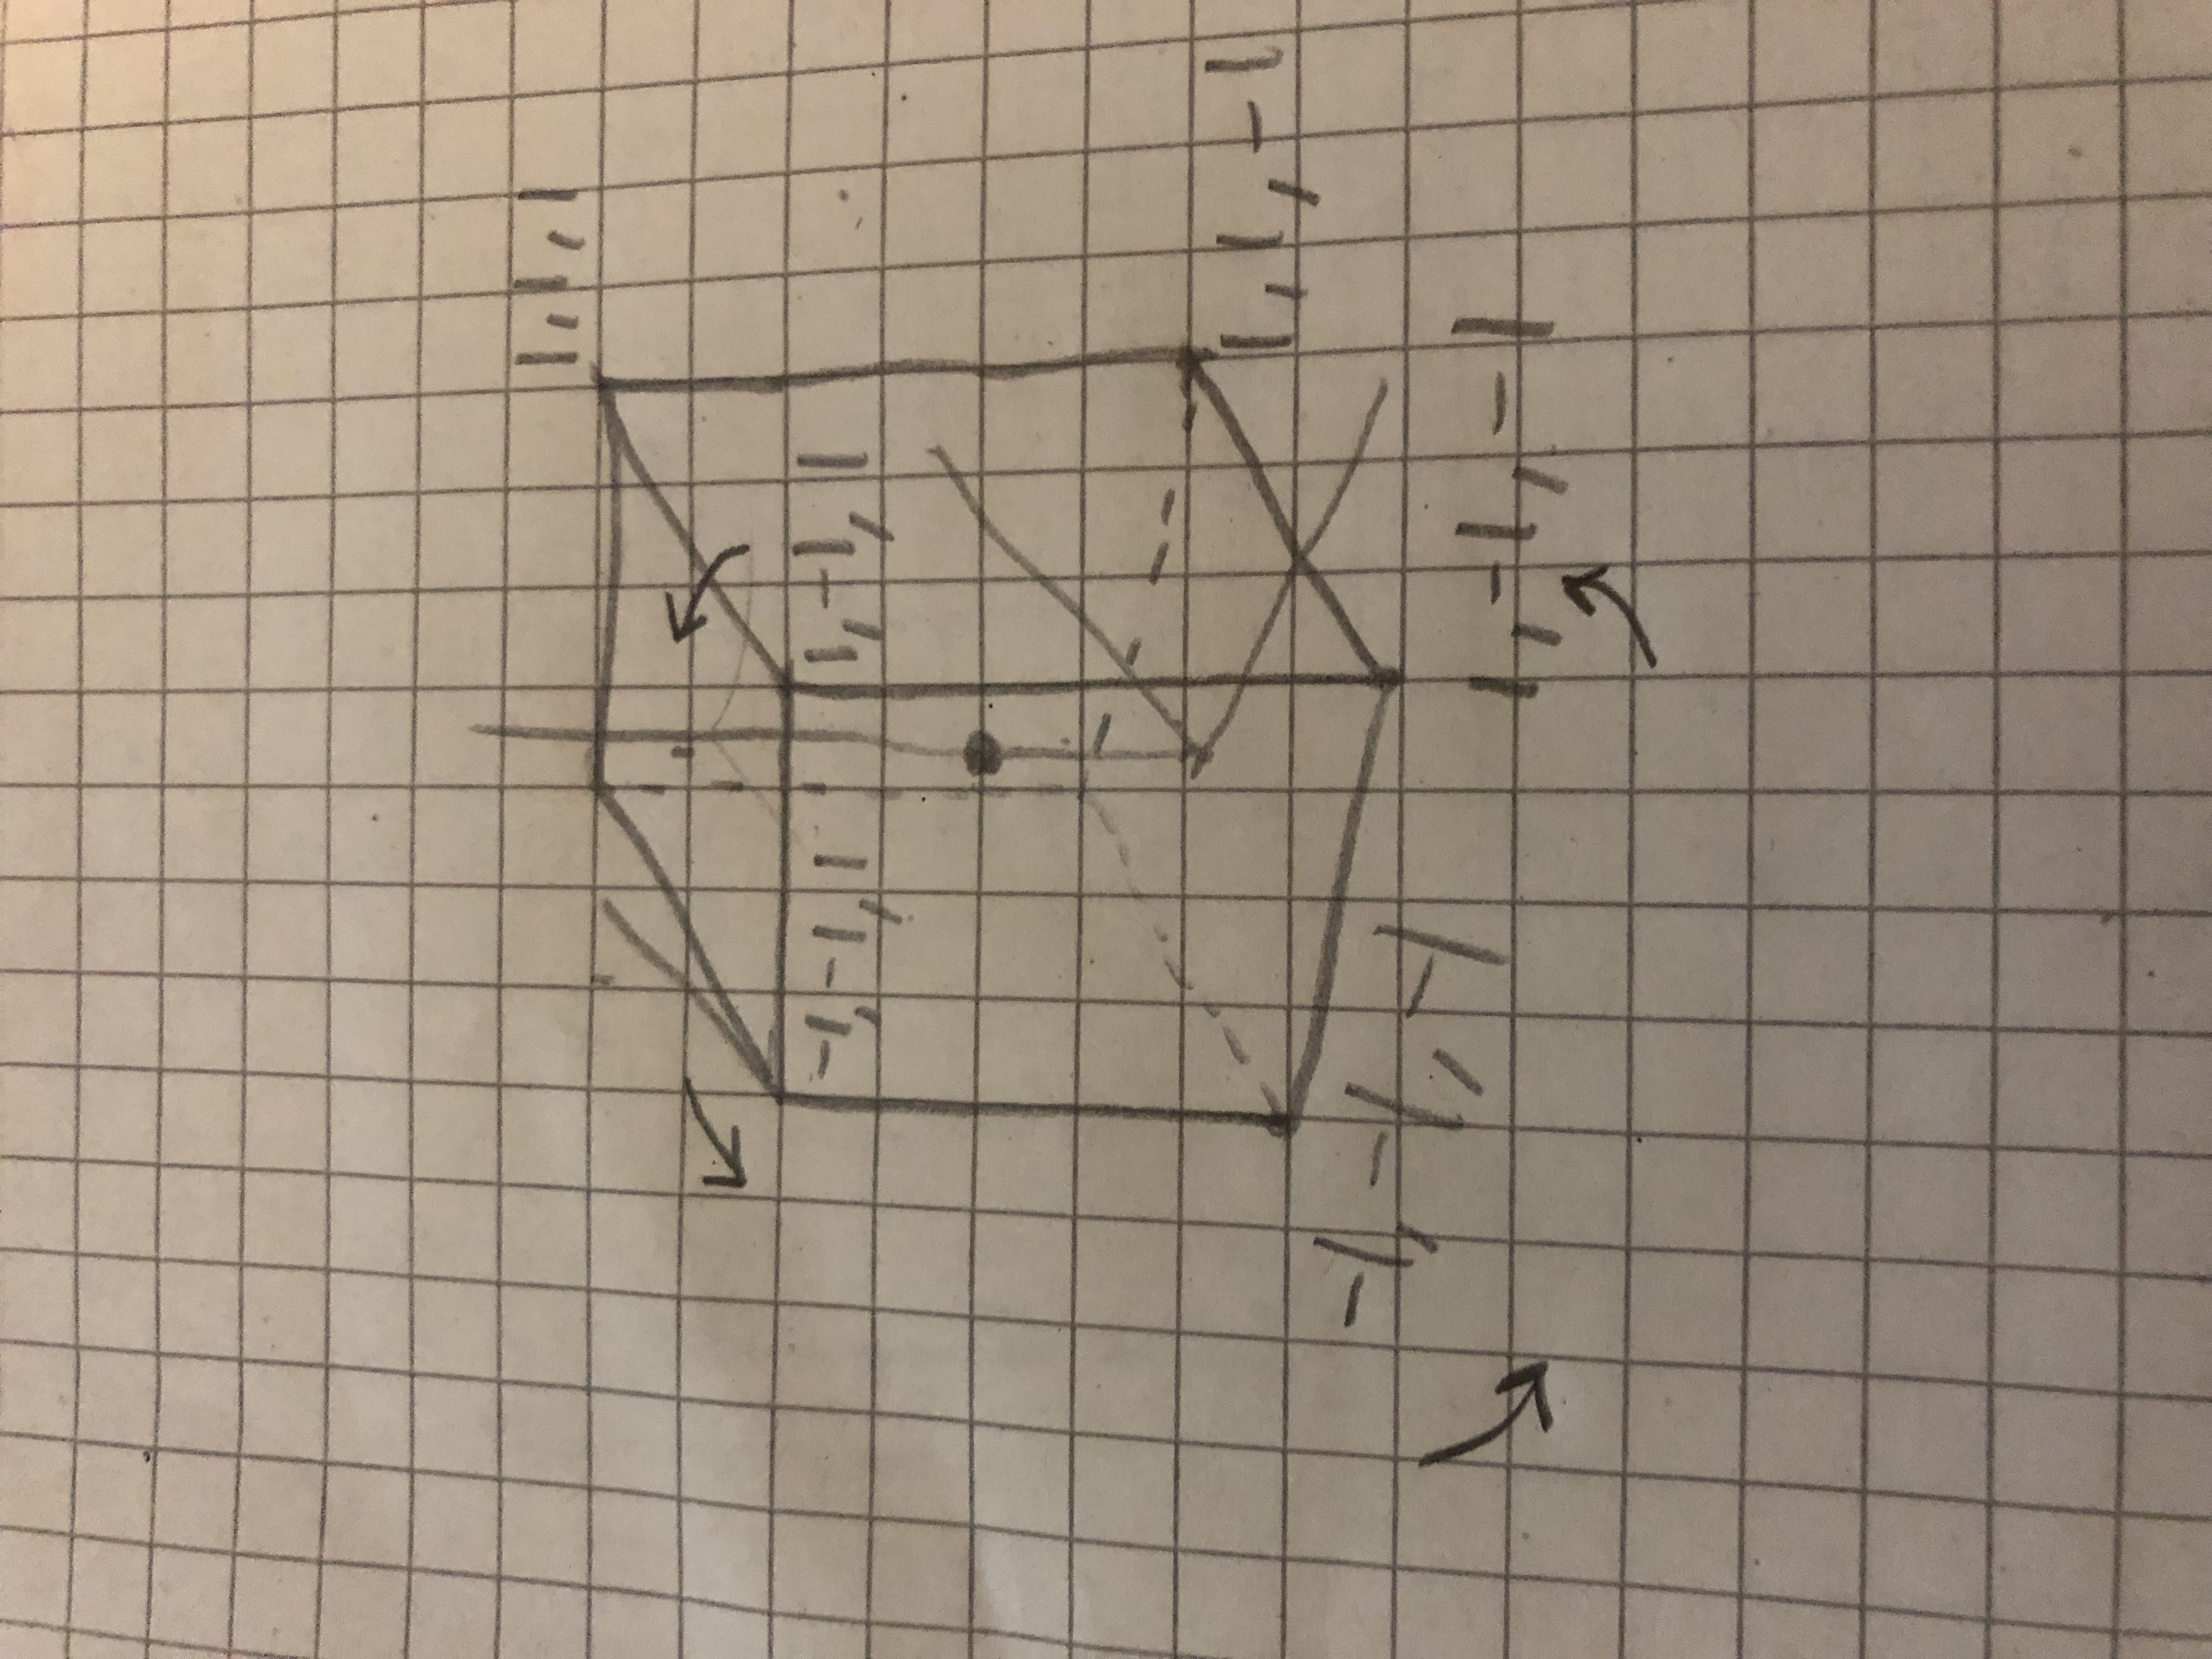 1, 1, 1
-1, -1, 1
1, -1, 1
1, 1, -1
-1, -1, -1
1, -1, -1